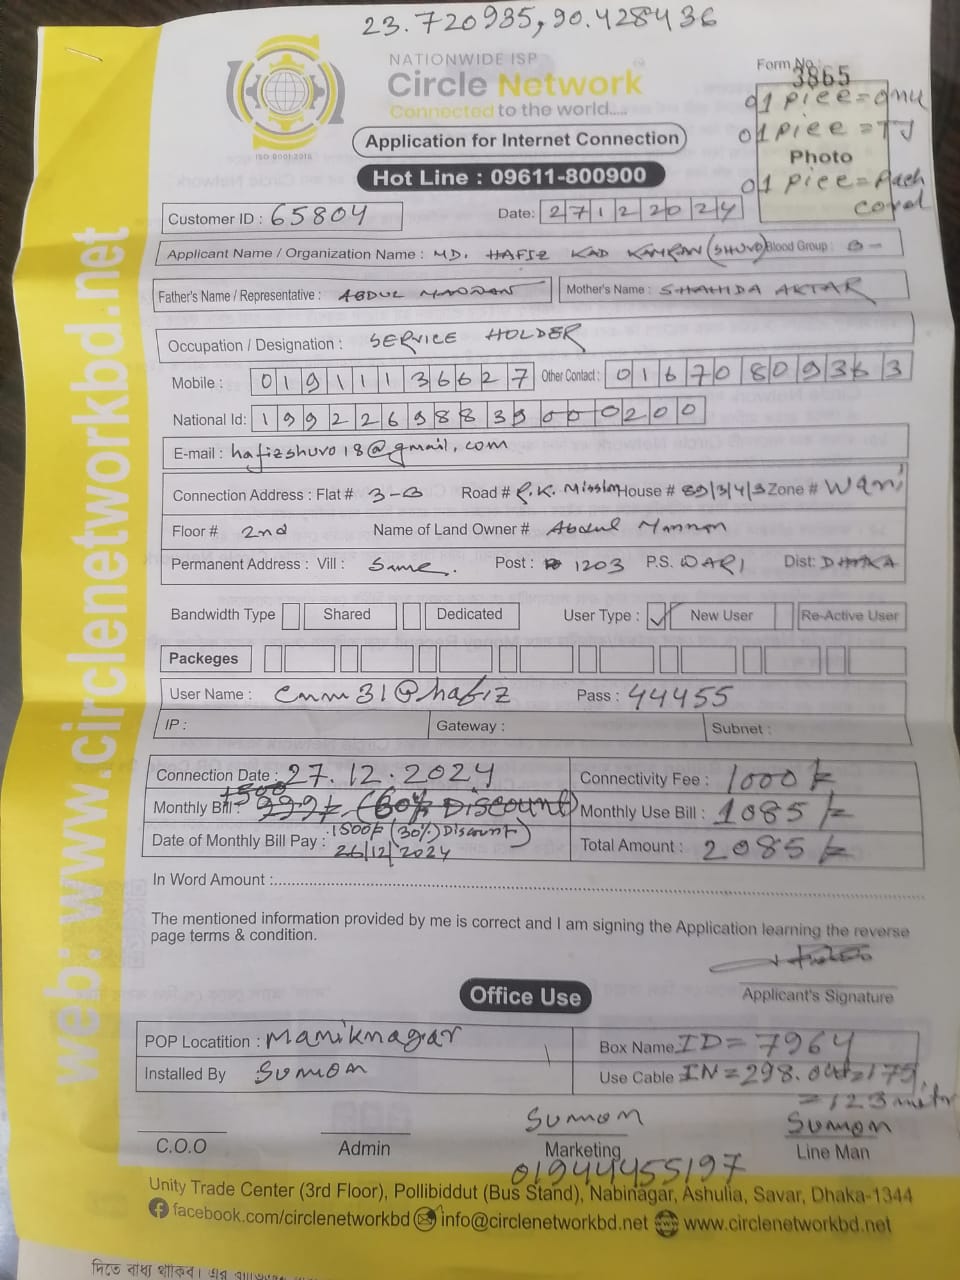 23.720935, 90.428436
NATIONWIDE ISP
Circle Network
Connected to the world.....
ISO 9001:2015
Form No.: 3865
01 piece = onu
01 piece = TJ
Photo
01 piece = pach cord
Application for Internet Connection
Hot Line : 09611-800900
Customer ID : 65804
Date: 27122024
Applicant Name / Organization Name : MD. HAFIZ KAMRAN (SHUVO) Blood Group : B-
Father's Name / Representative : ABDUL MANNAN Mother's Name : SHAHIDA AKTAR
Occupation / Designation : SERVICE HOLDER
Mobile : 01911136627 Other Contact : 01670809363
National Id: 19922698839000200
E-mail : hafizshuvo18@gmail.com
Connection Address : Flat # 3-B Road # R.K. Mission House # 89/3/4/3 Zone # Wari
Floor # 2nd Name of Land Owner # Abdul Mannan
Permanent Address : Vill : Same. Post : 1203 P.S. WARI Dist: DHAKA
Bandwidth Type Shared Dedicated User Type : ✓ New User Re-Active User
Packeges
User Name : cnm31@hafiz Pass : 44455
IP : Gateway : Subnet :
Connection Date : 27.12.2024 Connectivity Fee : 1000 tk
Monthly Bill : 1500 999tk (60% Discount) Monthly Use Bill : 1085 tk
1500tk (30% Discount)
Date of Monthly Bill Pay : 26/12/2024 Total Amount : 2085 tk
In Word Amount :
The mentioned information provided by me is correct and I am signing the Application learning the reverse
page terms & condition.
Applicant's Signature
Office Use
POP Locatition : Maniknagar Box Name ID= 7964
Installed By Sumon Use Cable IN=298. out=175
=123 miter
Sumon Sumon
C.O.O Admin Marketing Line Man
01944455197
Unity Trade Center (3rd Floor), Pollibiddut (Bus Stand), Nabinagar, Ashulia, Savar, Dhaka-1344
facebook.com/circlenetworkbd info@circlenetworkbd.net www.circlenetworkbd.net
web: www.circlenetworkbd.net
দিতে বাধ্য থাকিব। এর